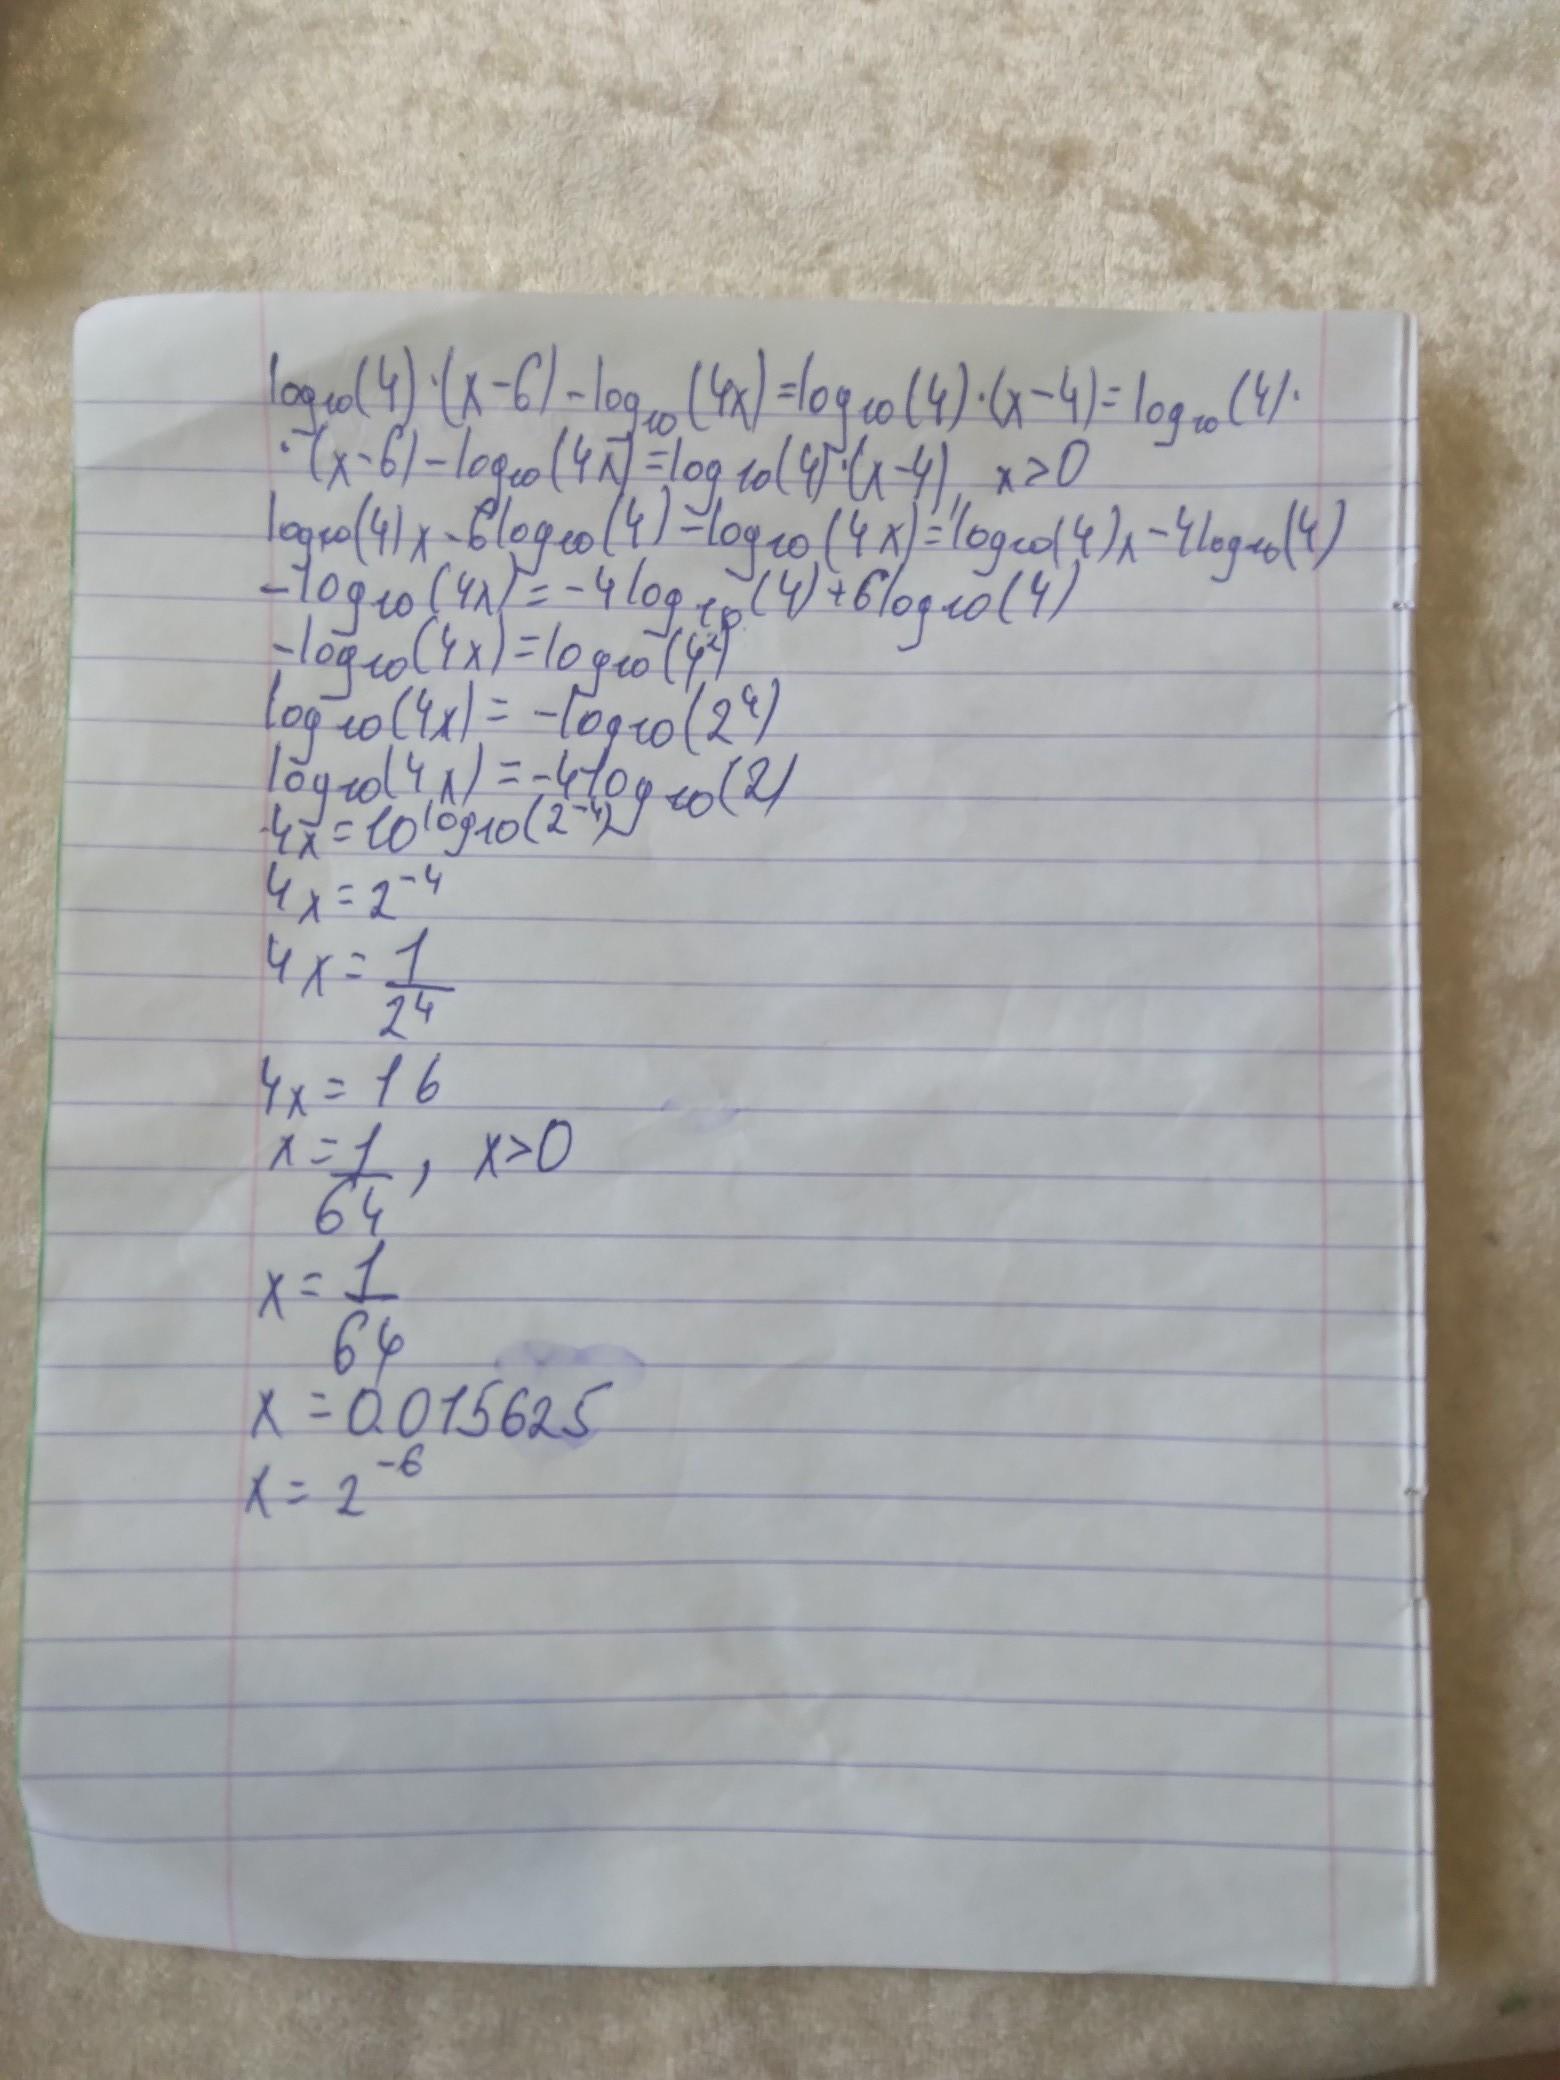 log₁₀(4)·(x-6)-log₁₀(4x)=log₁₀(4)·(x-4)=log₁₀(4)·
·(x-6)-log₁₀(4x)=log₁₀(4)·(x-4), x>0
log₁₀(4)x-6log₁₀(4)-log₁₀(4x)=log₁₀(4)x-4log₁₀(4)
-log₁₀(4x)=-4log₁₀(4)+6log₁₀(4)
-log₁₀(4x)=log₁₀(4²)
log₁₀(4x)=-log₁₀(2⁴)
log₁₀(4x)=-4log₁₀(2)
4x=10^log₁₀(2⁻⁴)
4x=2⁻⁴
4x=1/2⁴
4x=16
x=1/64, x>0
x=1/64
x=0.015625
x=2⁻⁶